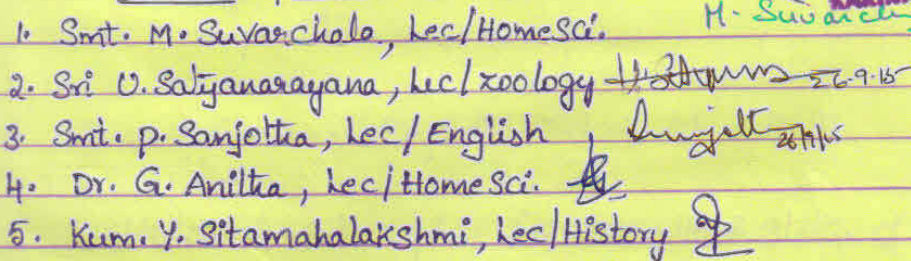 1. Smt. M. Suvarchala, Lec/HomeSci. M. Suvarch
2. Sri U. Satyanarayana, Lec/zoology 26-9-15
3. Smt. P. Sanjotha, Lec/English, 26/9/15
4. Dr. G. Anitha, Lec/HomeSci.
5. Kum. Y. Sitamahalakshmi, Lec/History